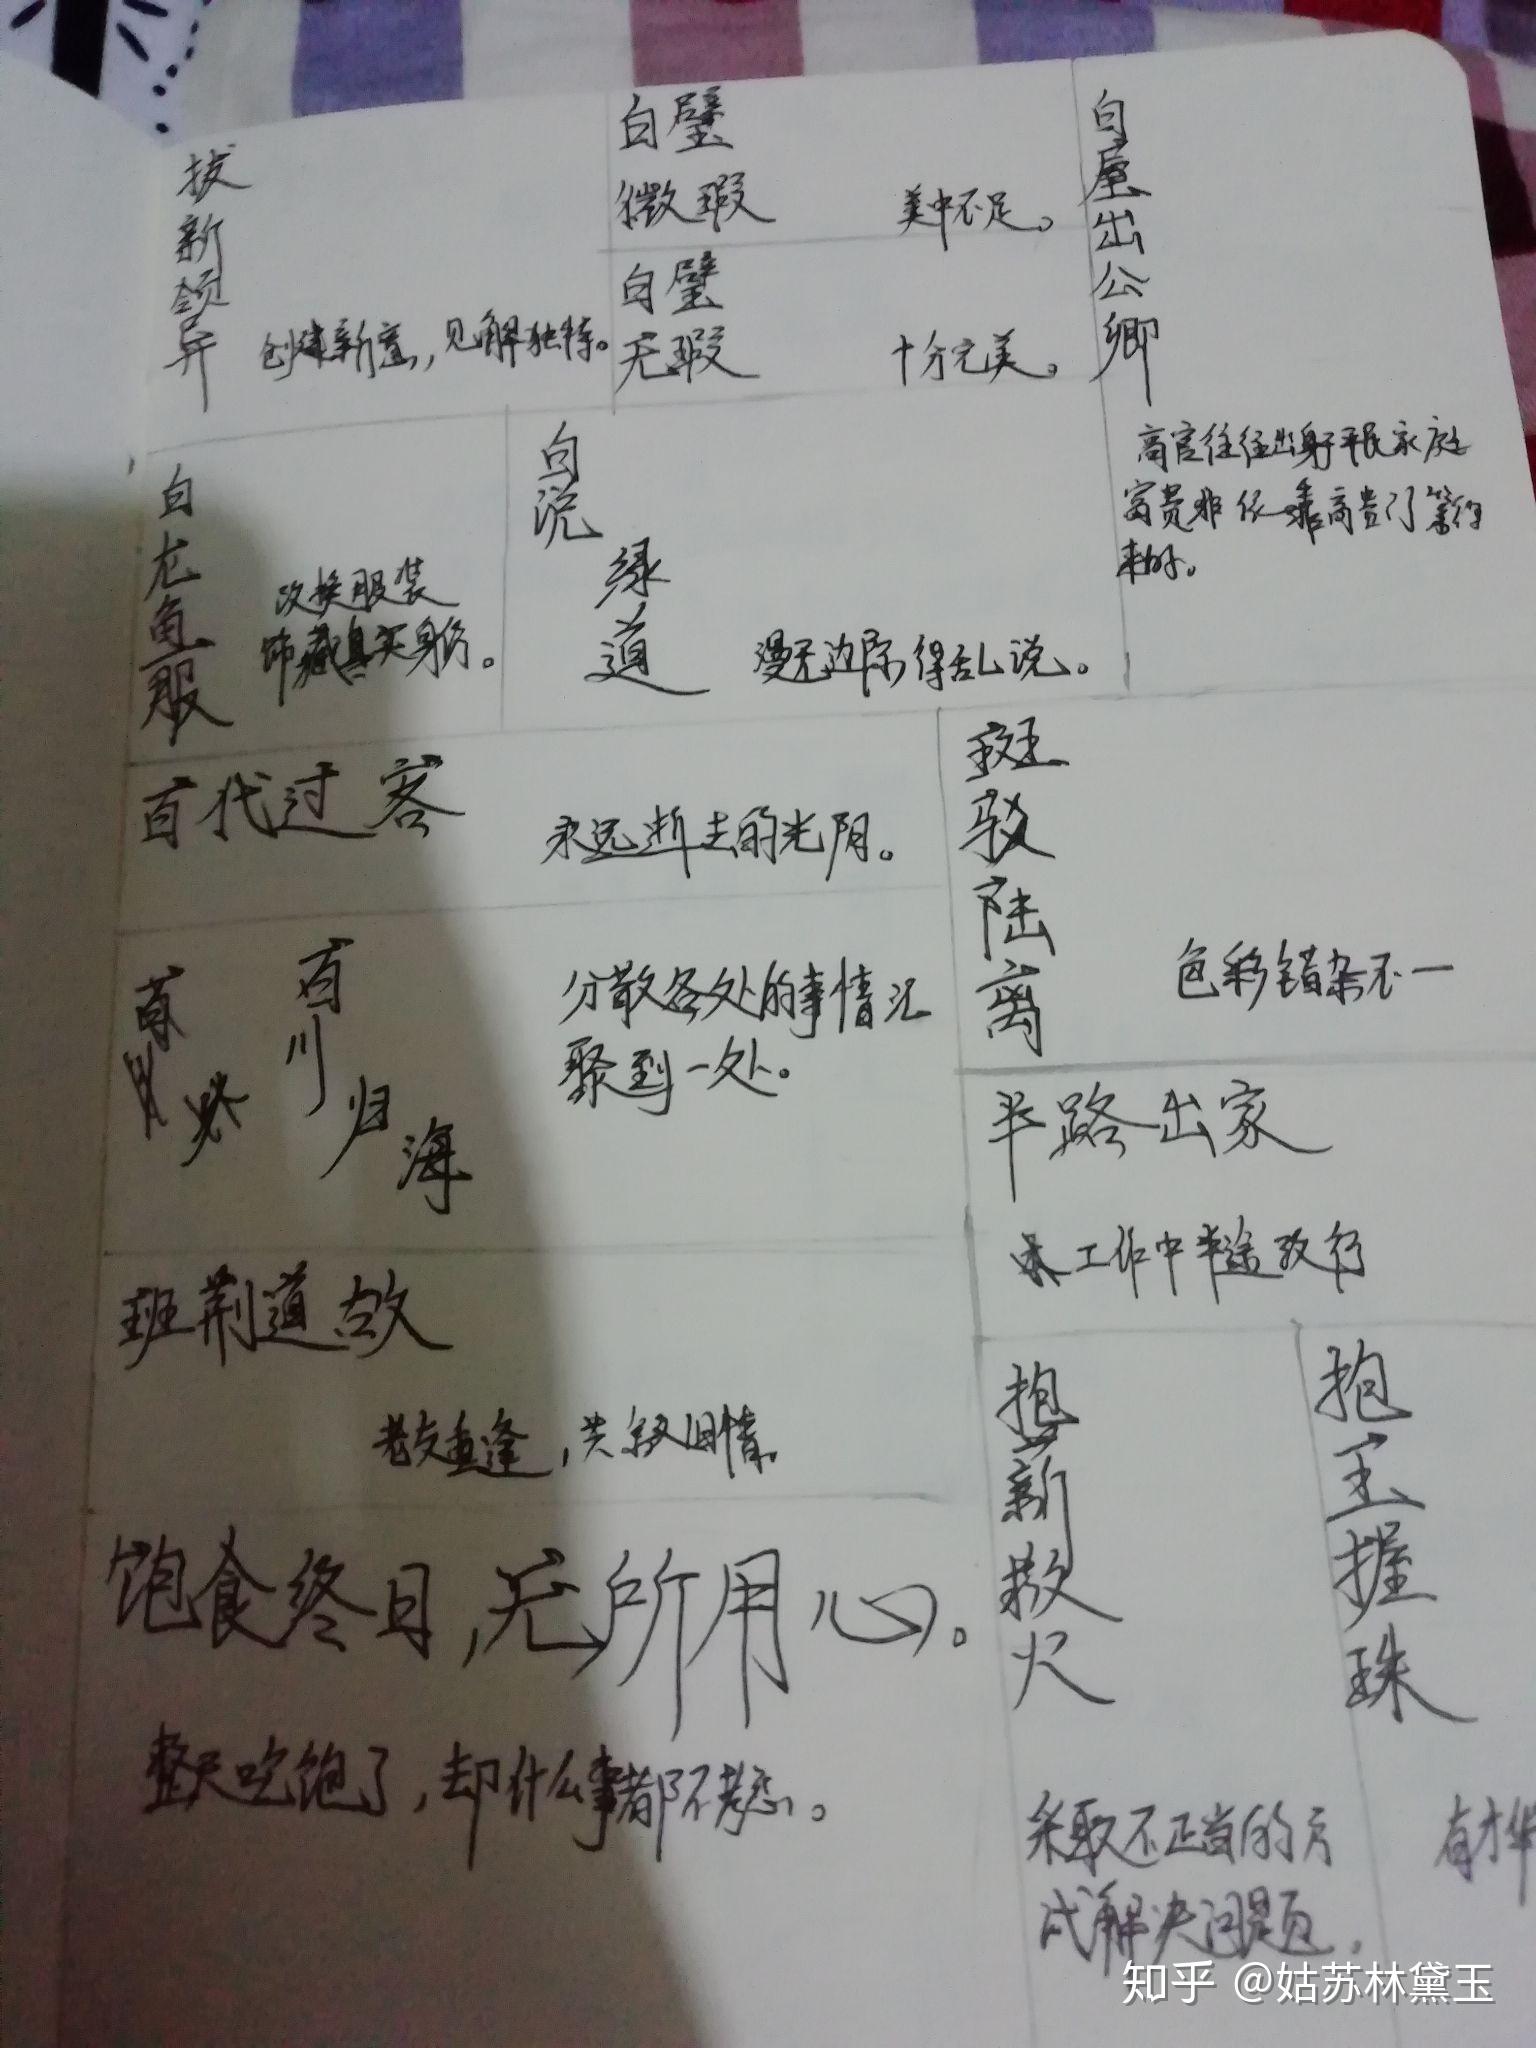 拔新领异
创建新意，见解独特。
白璧
微瑕
美中不足。
白璧
无瑕
十分完美。
白屋出公卿
高官往往出身平民家庭
富贵非依靠高贵门第得
来的。
白龙鱼服
改换服装
饰藏真实身份。
白说
绿道
漫无边际得乱说。
百代过客
永远逝去的光阴。
斑驳陆离
色彩错杂不一
百川归海
分散各处的事情汇
聚到一处。
半路出家
工作中半途改行
班荆道故
老友重逢，共叙旧情。
抱薪救火
采取不正当的方
式解决问题。
抱玉握珠
有才华
饱食终日，无所用心。
整天吃饱了，却什么事都不考虑。
知乎 @姑苏林黛玉